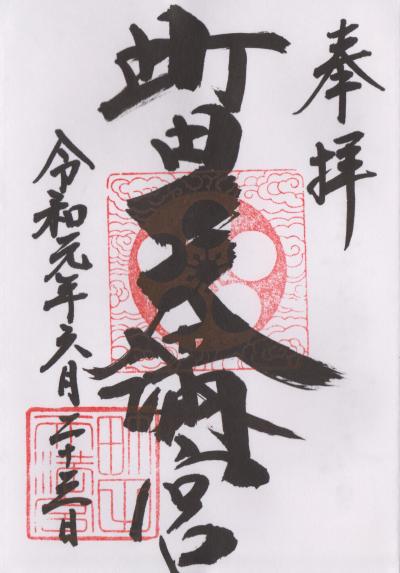 奉拝
町田天満宮
令和元年六月二十三日